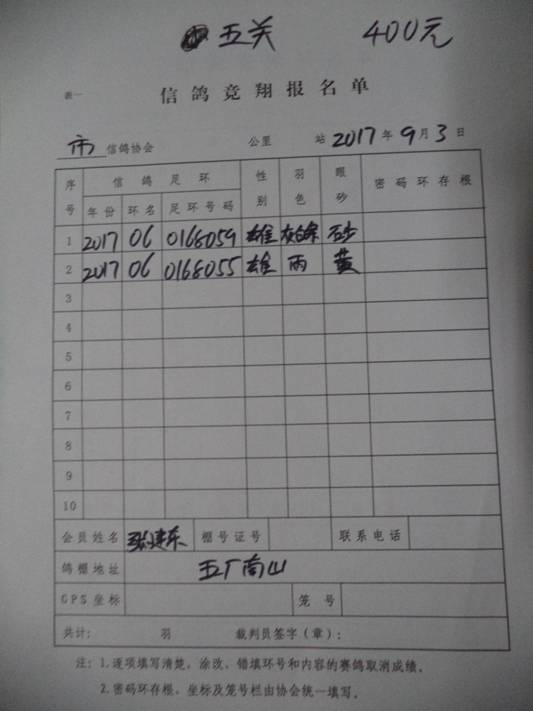 五关 400元
表一 信鸽竞翔报名单
市 信鸽协会 公里 站 2017年9月3日
序号 信鸽足环 性别 羽色 眼砂 密码环存根
年份 环名 足环号码
1 2017 06 0168059 雄 砂
2 2017 06 0168055 雄 雨 黄
3
4
5
6
7
8
9
10
会员姓名 张建东 棚号证号 联系电话
鸽棚地址 五厂南山
GPS坐标 笼号
共计: 羽 裁判员签字(章):
注:1.逐项填写清楚,涂改、错填环号和内容的赛鸽取消成绩。
2.密码环存根、坐标及笼号栏由协会统一填写。